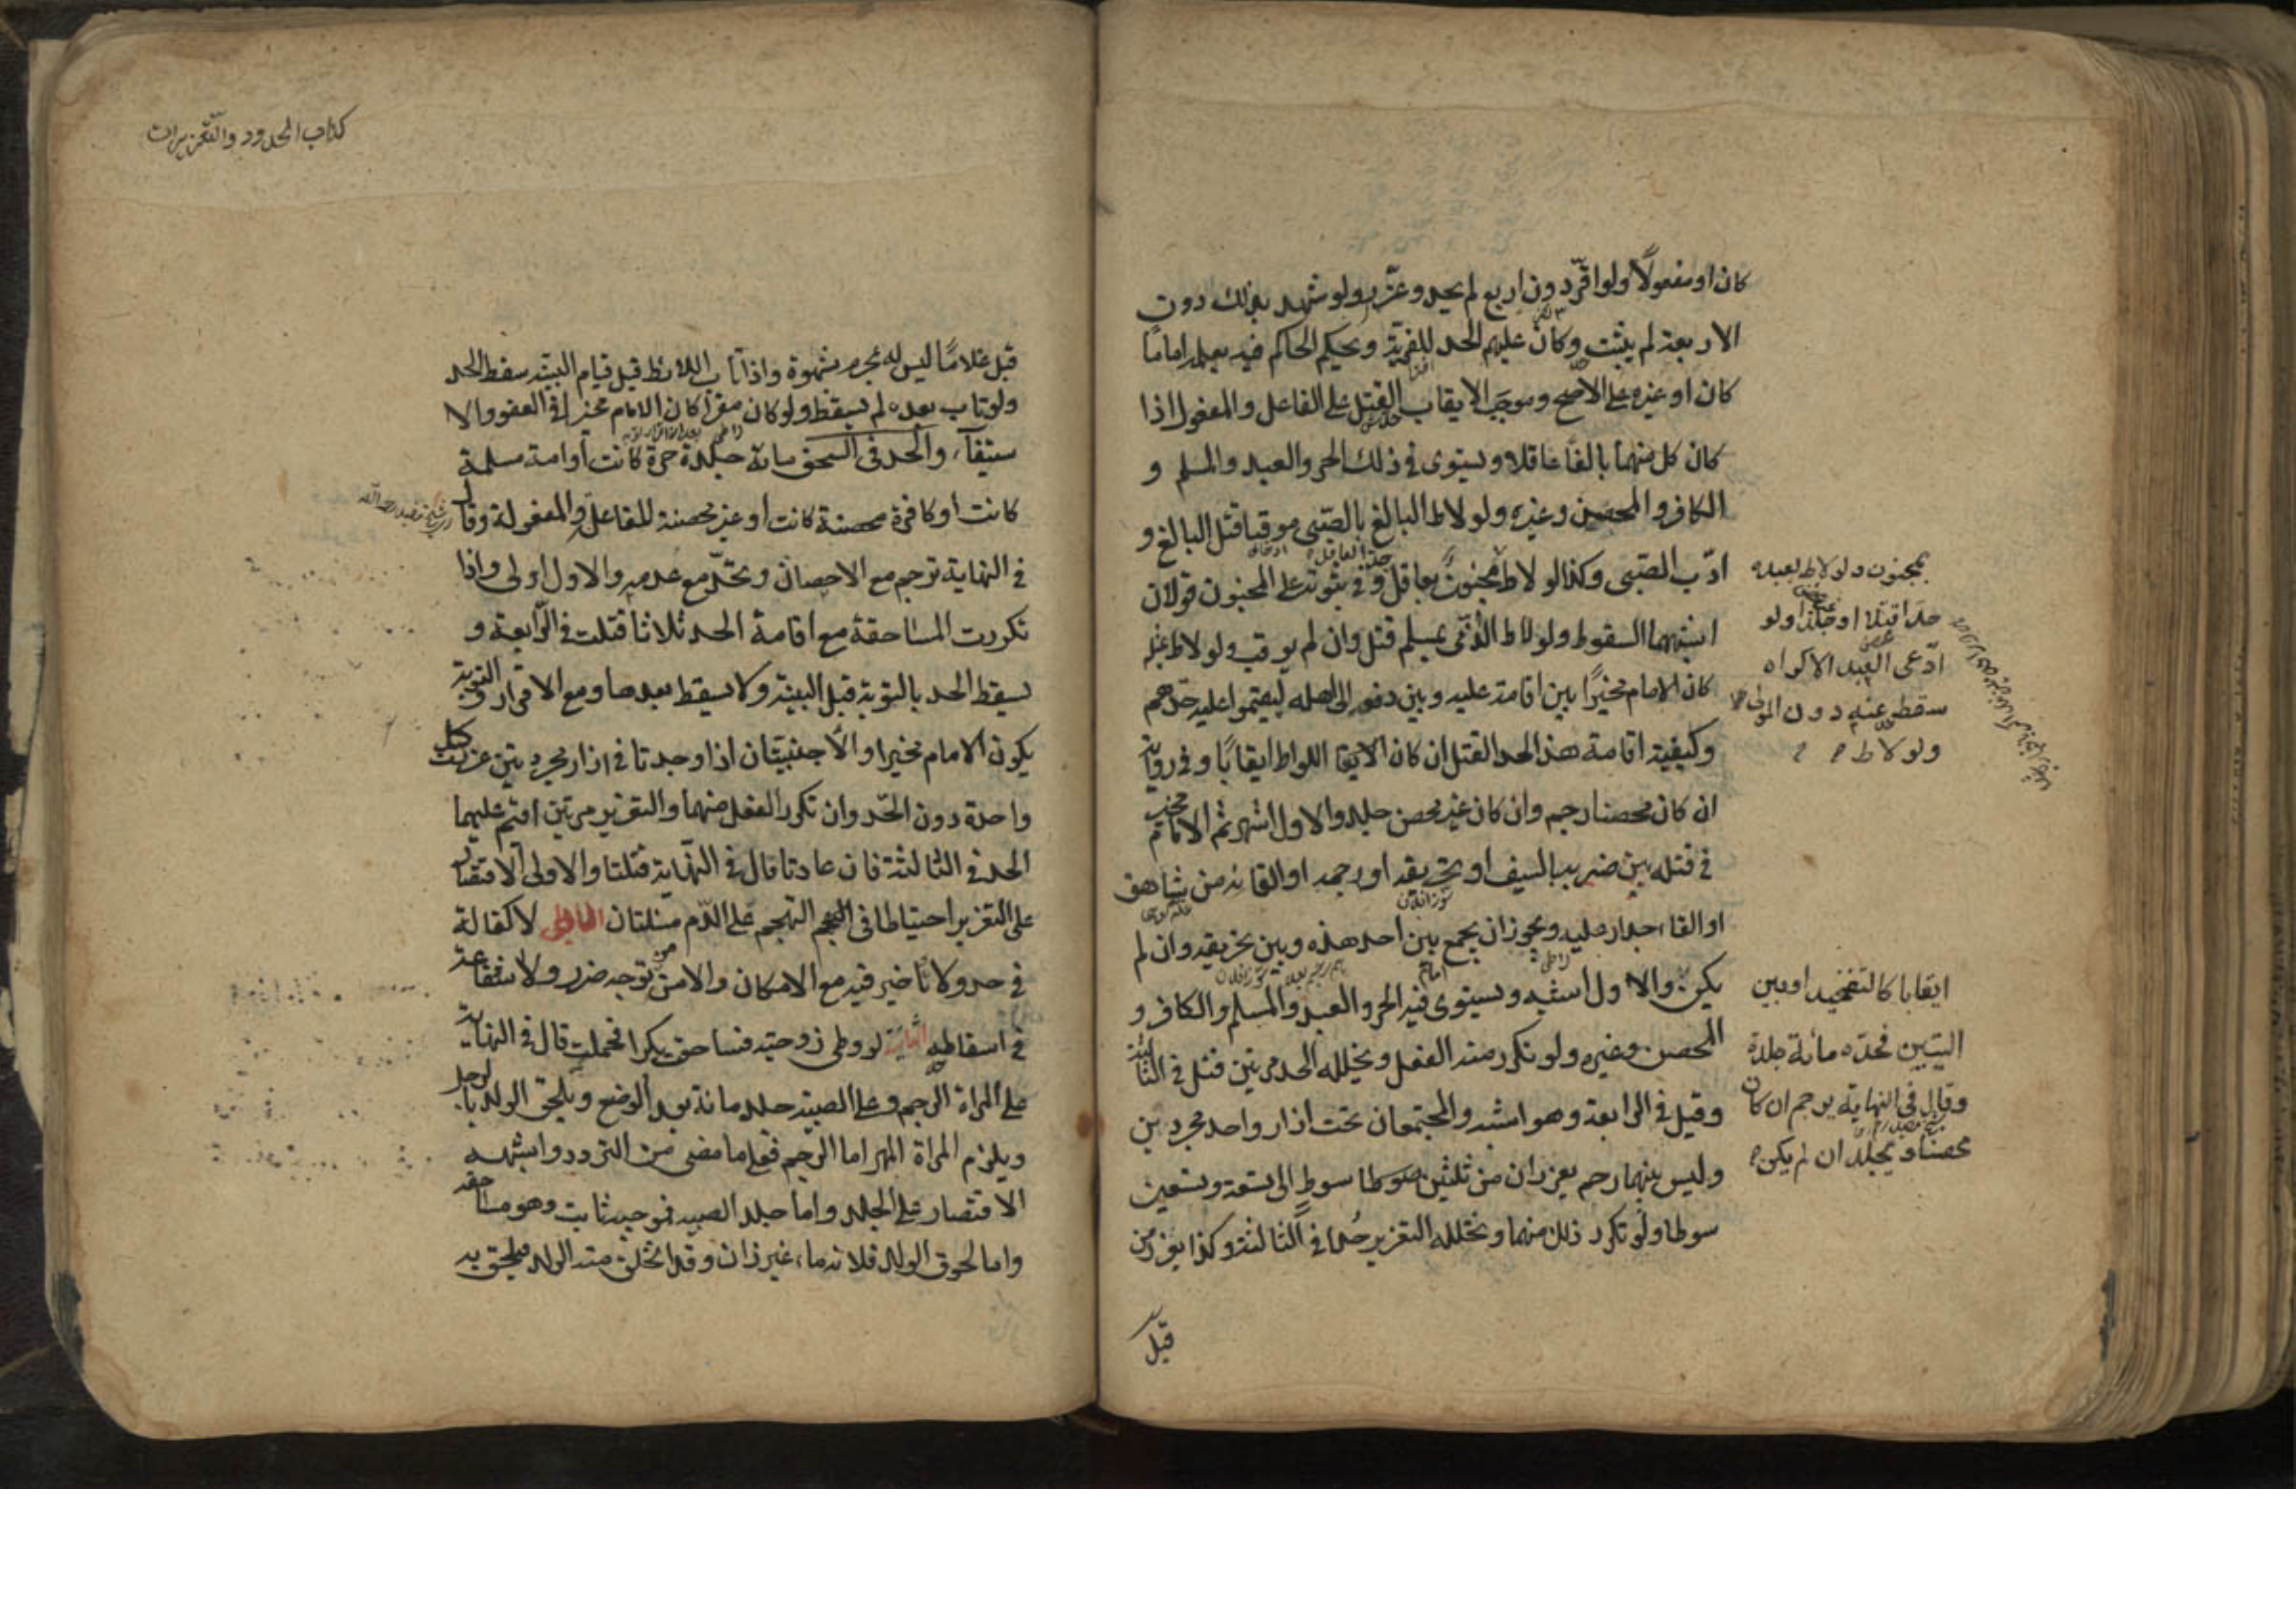 كان او مفعولًا ولو اقرّ دون اربع لم يحد وعزّر ولو شهد بذلك دون
الاربعة لم يثبت وكان عليهم الحد للفرية ويحكم الحاكم فيه بعلمه اماما
كان او غيره على الاصح وموجب الايقاب القتل على الفاعل والمفعول اذا
كان كل منهما بالغا عاقلا ويستوى في ذلك الحر والعبد والمسلم و
الكافر والمحصن وغيره ولو لاط البالغ بالصّبى موقبا قتل البالغ و
ادّب الصّبى وكذا لو لاط مجنون بعاقل وفي ثبوته على المجنون قولان
اشبههما السقوط ولو لاط الذّمى بمسلم قتل وان لم يوقب ولو لاط بمثله
كان الامام مخيرًا بين اقامة عليه وبين دفعه الى اهله ليقيموا عليه حدهم
وكيفية اقامة هذا الحد القتل ان كان اللواط ايقابًا وفي رواية
ان كان محصنا رجم وان كان غير محصن جلد والاول اشهر ثم الامام مخير
في قتله بين ضربه بالسيف او تحريقه او رجمه او القائه من شاهق
او القاء جدار عليه ويجوز ان يجمع بين احد هذه وبين تحريقه وان لم
يكن والاول اشبه ويستوى فيه الحر والعبد والمسلم والكافر و
المحصن وغيره ولو تكرر منه الفعل وتخلله الحد مرتين قتل في الثالثة
وقيل في الرابعة وهو اشبه والمجتمعان تحت ازار واحد مجردين
وليس بينهما رحم يعزران من ثلثين سوطا الى تسعة وتسعين
سوطا ولو تكرر ذلك منهما وتخلله التعزير حُدا في الثالثة وكذا يعزر من
قبل
بمجنون ولو لاط بعبده
حدا قتلا او جلدا ولو
ادّعى العبد الاكراه
سقط عنه دون المولى
ولو لاط
ايقابا كالتفخيد او بين
اليتين فحدّه مائة جلدة
وقال في النهاية يرجم ان كان
محصنا ويجلد ان لم يكن
كتاب الحدود والتّعزيرات
قبل غلامًا ليس له بمحرم بشهوة واذا تاب اللائط قبل قيام البينة سقط الحد
ولو تاب بعده لم يسقط ولو كان مقرّا كان الامام مخيرا في العفو والا
ستيفآء والحد في السحق مائة جلدة حرة كانت او امة مسلمة
كانت او كافرة محصنة كانت او غير محصنة للفاعلة والمفعولة وقال
في النهاية ترجم مع الاحصان وتحدّ مع عدمه والاول اولى واذا
تكررت المساحقة مع اقامة الحد ثلاثا قتلت في الرّابعة و
يسقط الحد بالتوبة قبل البينة ولا يسقط بعدها ومع الاقرار والتوبة
يكون الامام مخيرا والاجنبيّتان اذا وجدتا في ازار مجردتين عزرت كل
واحدة دون الحّد وان تكرر الفعل منهما والتعزير مرتين اقيم عليهما
الحد في الثالثة فان عادتا قال في النّهاية قتلتا والاولى الاقتصار
على التعزير احتياطا في التهجم على الدّم مسئلتان الاولى لا كفالة
في حد ولا تاخير فيه مع الامكان والامن من توجه ضرر ولا شفاعة
في اسقاطه الثانية لو وطى زوجته فساحقت بكرا فحملت قال في النهاية
على المراة الرجم وعلى الصبية جلد مائة بعد الوضع ويلحق الولد بالرجل
ويلزم المراة المهر اما الرّجم فعلى ما مضى من التردد واشبهه
الاقتصار على الجلد واما جلد الصبية فموجبه ثابت وهو مساحقة
واما لحوق الولد فلانه ماء غير زان وقد انخلق منه الولد فيلحق به